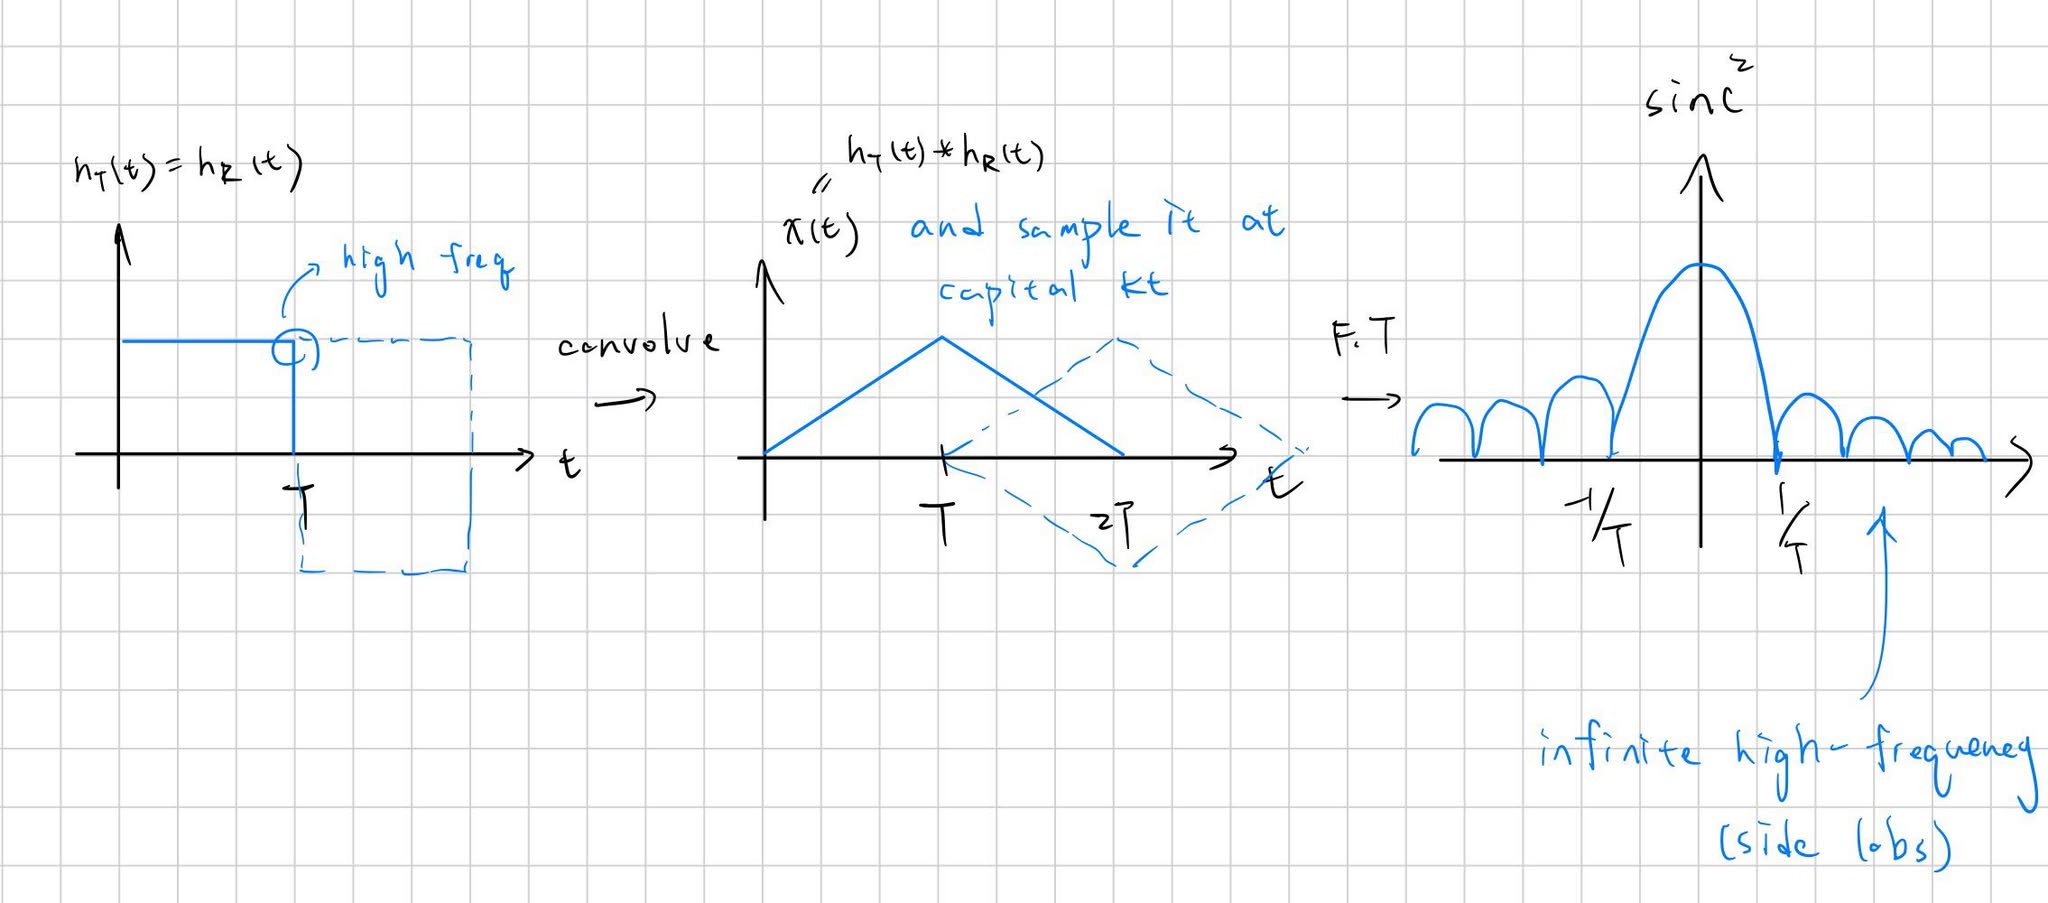 h_T(t) = h_R(t)
high freq
T
t
convolve
h_T(t) * h_R(t)
"
x(t) and sample it at
capital kt
T
2T
t
F.T
sinc²
-1/T
1/T
infinite high-frequency
(side lobs)